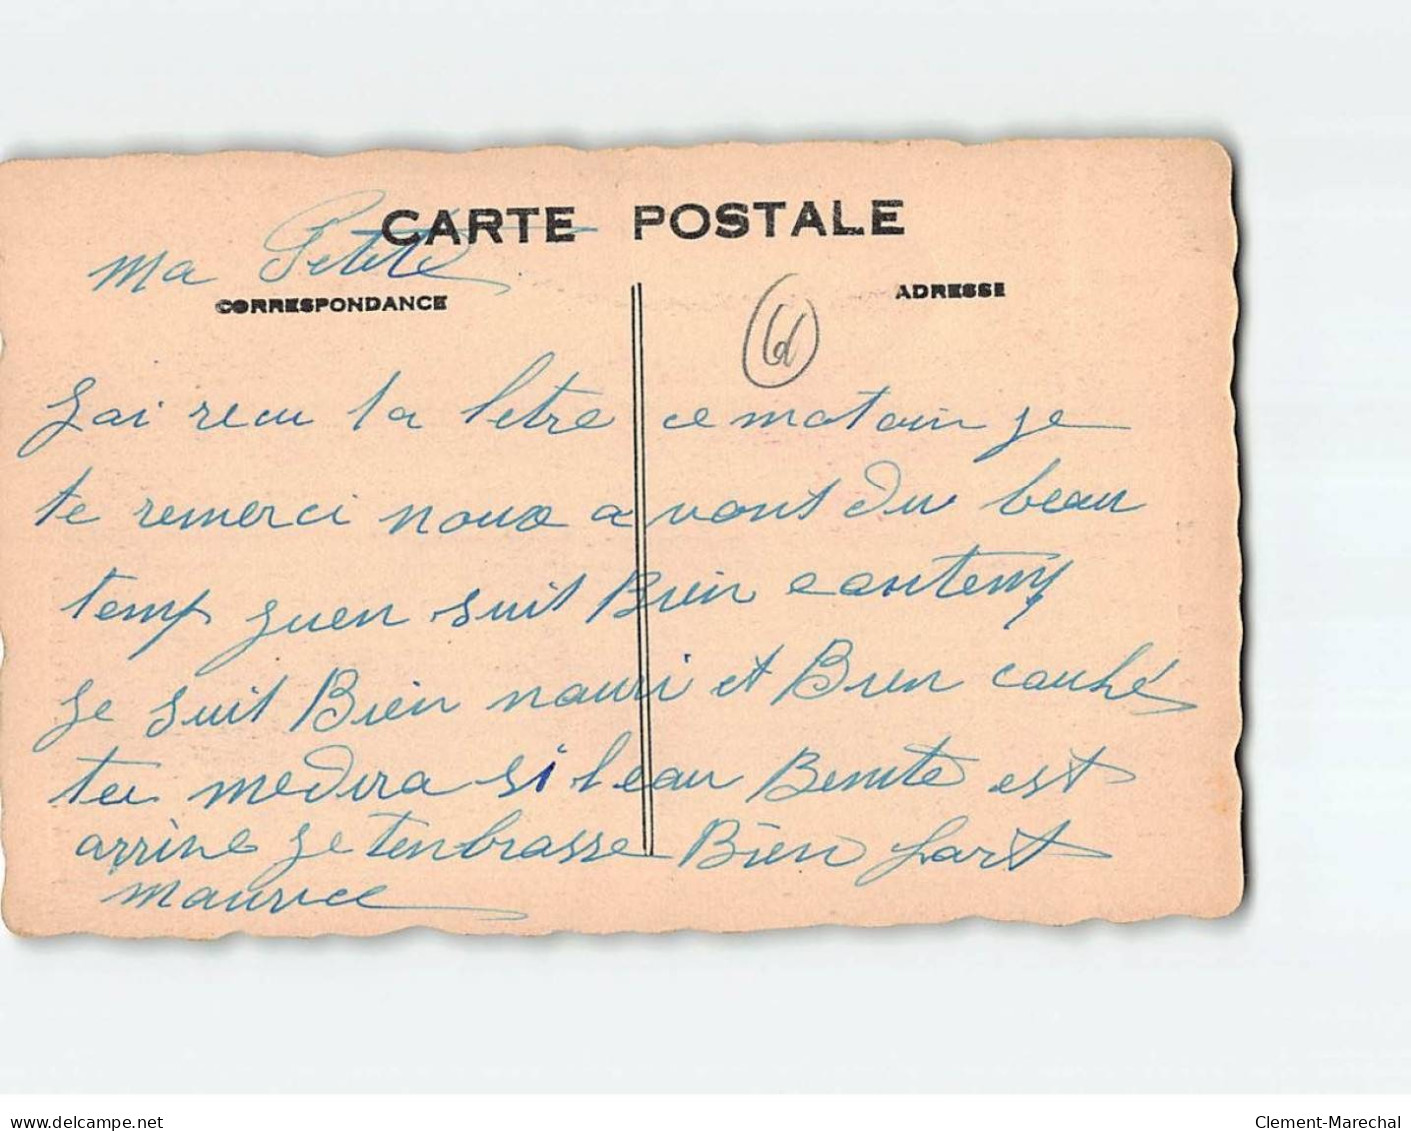 CARTE POSTALE
ma Petite
CORRESPONDANCE
ADRESSE
61
J'ai recu ta letre ce matain je
te remerci nous avont du beau
temp j'uen suit Bien contemp
je suit Bien nouri et Bien couhé
tu medira si l'eau Benite est
arrive je tenbrasse Bien fort
maurice
delcampe.net
Clement-Marechal